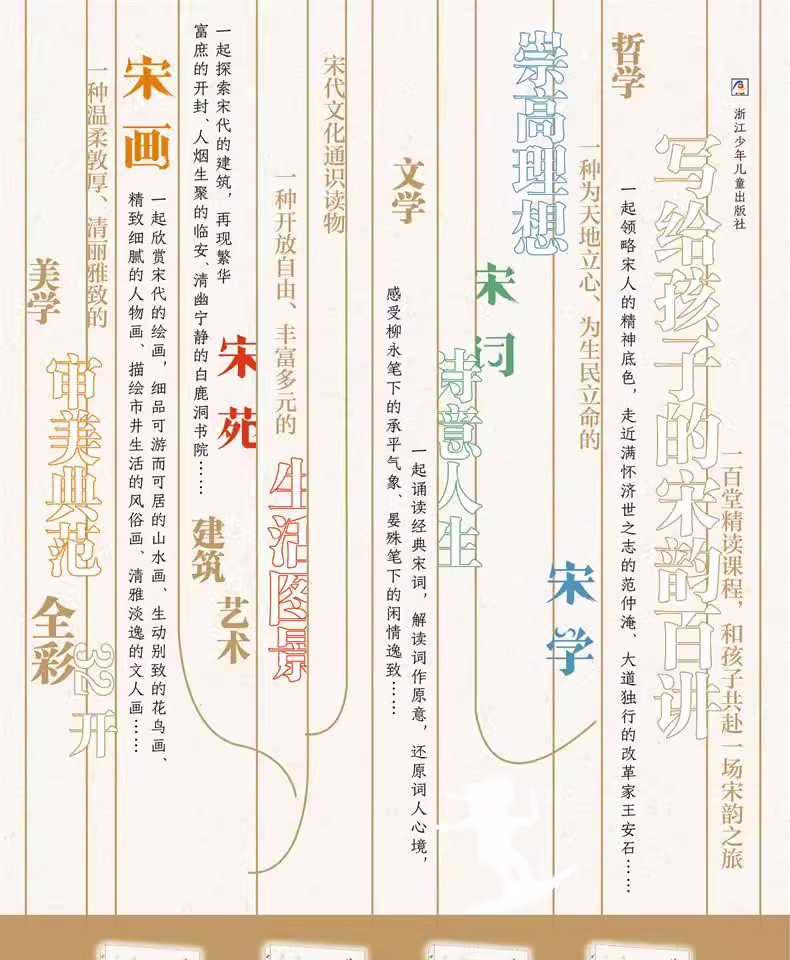 浙江少年儿童出版社
写给孩子的宋韵百讲
一百堂精读课程，和孩子共赴一场宋韵之旅
哲学
崇高理想
一种为天地立心、为生民立命的
宋学
一起领略宋人的精神底色，走近满怀济世之志的范仲淹、大道独行的改革家王安石……
文学
宋词
诗意人生
一起诵读经典宋词，解读词作原意，还原词人心境，
感受柳永笔下的承平气象、晏殊笔下的闲情逸致……
宋代文化通识读物
一种开放自由、丰富多元的
生活图景
宋苑
建筑
艺术
一起探索宋代的建筑，再现繁华
富庶的开封、人烟生聚的临安、清幽宁静的白鹿洞书院……
宋画
一种温柔敦厚、清丽雅致的
美学
审美典范
一起欣赏宋代的绘画，细品可游而可居的山水画、生动别致的花鸟画、
精致细腻的人物画、描绘市井生活的风俗画、清雅淡逸的文人画……
全彩
32开